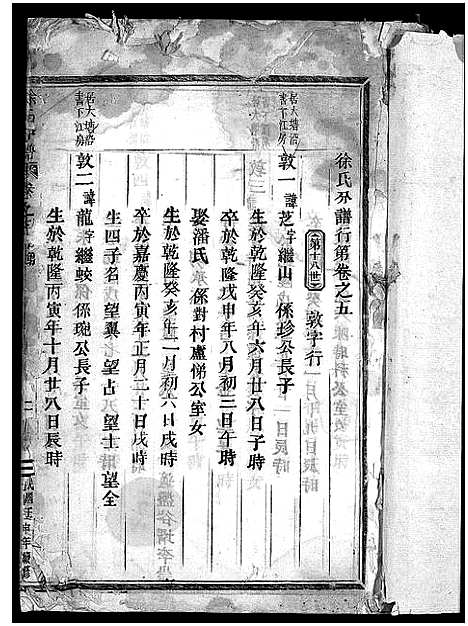 徐氏分譜行第卷之五
第十八世 敦字行
居大塘沿
書下江房
敦一 諱芝字繼山 係珍公長子
生於乾隆癸亥年六月廿八日子時
卒於乾隆戊申年八月初三日午時
娶潘氏 係對村盧悌公室女
生於乾隆癸亥年二月初六日戌時
卒於嘉慶丙寅年正月二十日戌時
生四子名 望翼 望占 望士 望全
居大塘沿
書下江房
敦二 諱龍字繼蛟 係琬公長子
生於乾隆丙寅年十月廿八日辰時